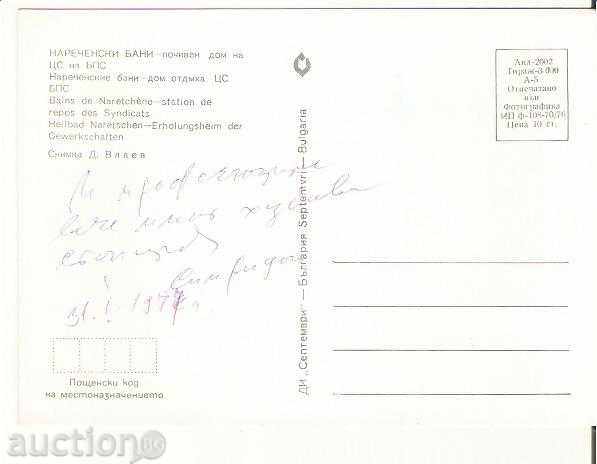 НАРЕЧЕНСКИ БАНИ—почивен дом на
ЦС на БПС
Нареченские бани-дом отдыха ЦС
БПС
Bains de Naretchène—station de
repos des Syndicats
Heilbad Naretschen—Erholungsheim der
Gewerkschaften
Снимка Д. Влаев
31.I.1977г.
Пощенски код
на местоназначението
ДИ „Септември" — България Septemvri — Bulgaria
Акл-2002
Тираж-3 000
А-5
Отпечатано
във
Фотографика
ИП ф-108-70/76
Цена 10 ст.
auction BG